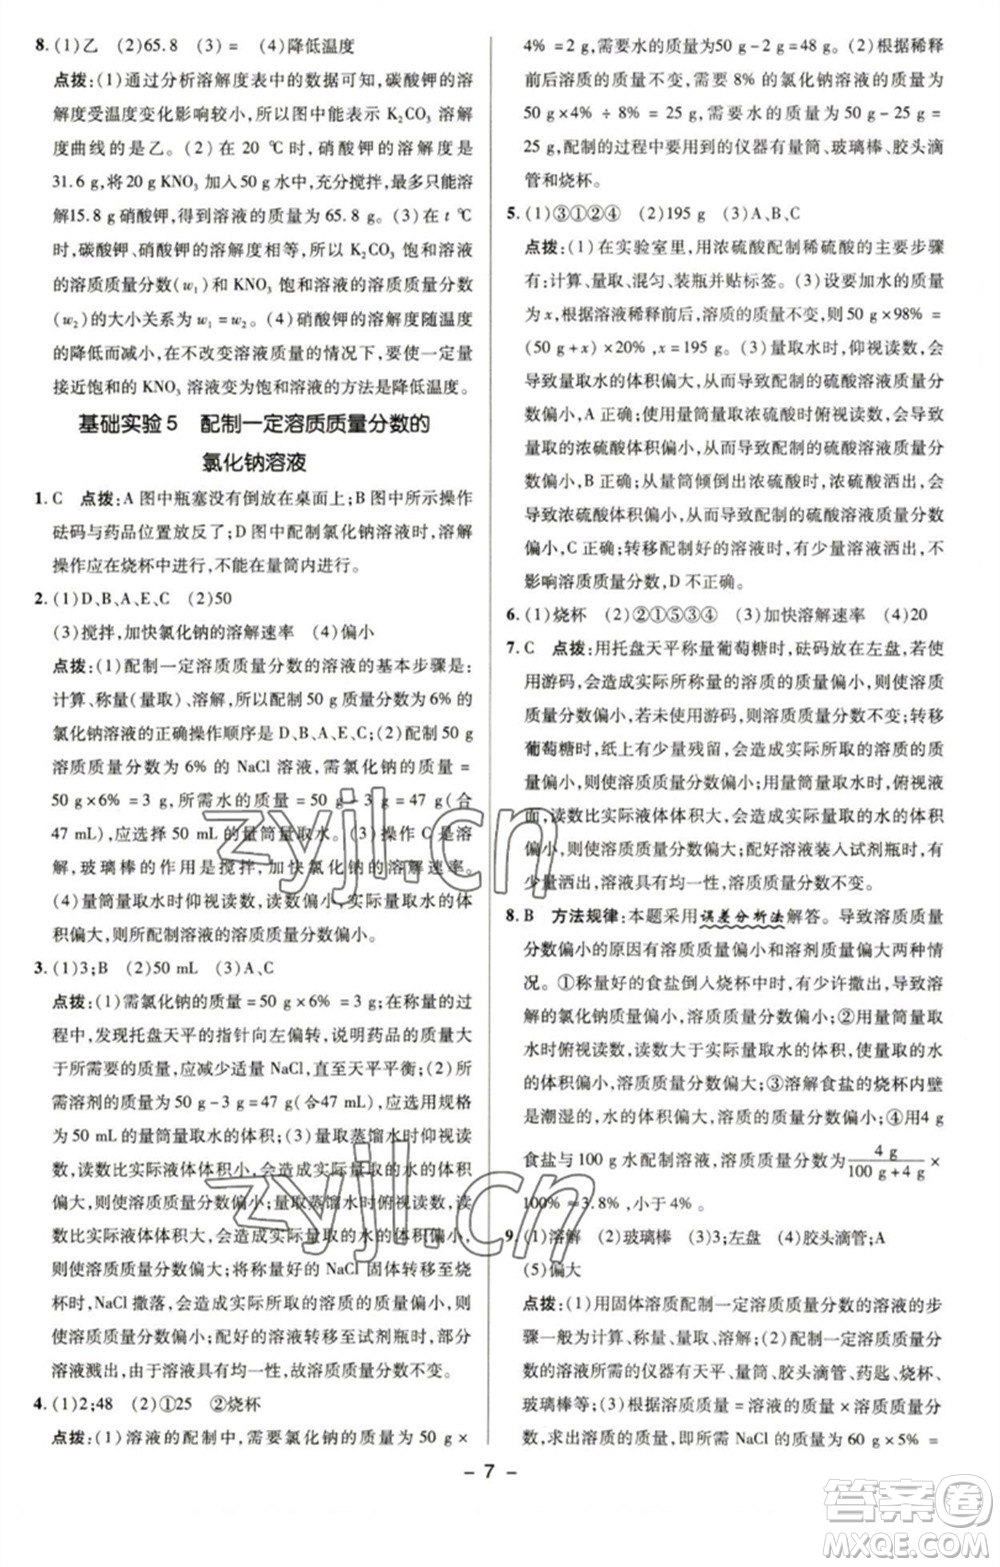 8. (1)乙 (2)65.8 (3) = (4)降低温度
点拨:(1)通过分析溶解度表中的数据可知,碳酸钾的溶
解度受温度变化影响较小,所以图中能表示 K₂CO₃ 溶解
度曲线的是乙。(2)在 20 ℃时,硝酸钾的溶解度是
31.6 g,将 20 g KNO₃ 加入50 g水中,充分搅拌,最多只能溶
解15.8 g 硝酸钾,得到溶液的质量为 65.8 g。(3)在 t ℃
时,碳酸钾、硝酸钾的溶解度相等,所以 K₂CO₃ 饱和溶液
的溶质质量分数(w₁)和KNO₃饱和溶液的溶质质量分数
(w₂)的大小关系为 w₁ = w₂。(4)硝酸钾的溶解度随温度
的降低而减小,在不改变溶液质量的情况下,要使一定量
接近饱和的 KNO₃ 溶液变为饱和溶液的方法是降低温度。
基础实验 5 配制一定溶质质量分数的
氯化钠溶液
1. C 点拨:A 图中瓶塞没有倒放在桌面上;B 图中所示操作
砝码与药品位置放反了;D 图中配制氯化钠溶液时,溶解
操作应在烧杯中进行,不能在量筒内进行。
2. (1)D、B、A、E、C (2)50
(3)搅拌,加快氯化钠的溶解速率 (4)偏小
点拨:(1)配制一定溶质质量分数的溶液的基本步骤是:
计算、称量(量取)、溶解,所以配制 50 g 质量分数为 6% 的
氯化钠溶液的正确操作顺序是 D、B、A、E、C;(2)配制 50 g
溶质质量分数为 6% 的 NaCl 溶液,需氯化钠的质量 =
50 g×6% = 3 g,所需水的质量 = 50 g - 3 g = 47 g(合
47 mL),应选择 50 mL 的量筒量取水。(3)操作 C 是溶
解,玻璃棒的作用是搅拌,加快氯化钠的溶解速率。
(4)用量筒量取水时俯视读数,会造成实际量取的水的体
积偏大,则所配制溶液的溶质质量分数偏小。
3. (1)3;B (2)50 mL (3)A、C
点拨:(1)需氯化钠的质量 = 50 g×6% = 3 g;在称量的过
程中,发现托盘天平的指针向左偏转,说明药品的质量大
于所需要的质量,应减少适量 NaCl,直至天平平衡;(2)所
需溶剂的质量为 50 g - 3 g = 47 g(合47 mL),应选用规格
为 50 mL 的量筒量取水的体积;(3)量取蒸馏水时仰视读
数,读数比实际液体体积小,会造成实际量取的水的体积
偏大,则使溶质质量分数偏小;量取蒸馏水时俯视读数,读
数比实际液体体积大,会造成实际量取的水的体积偏小,
则使溶质质量分数偏大;将称量好的 NaCl 固体转移至烧
杯时,NaCl 撒落,会造成实际所取的溶质的质量偏小,则
使溶质质量分数偏小;将配制好的溶液转移至试剂瓶时,部分
溶液溅出,由于溶液具有均一性,故溶质质量分数不变。
4. (1)2;48 (2)①25 ②烧杯
点拨:(1)溶液的配制中,需要氯化钠的质量为 50 g ×
4% = 2 g,需要水的质量为50 g - 2 g = 48 g。(2)根据稀释
前后溶质的质量不变,需要 8% 的氯化钠溶液的质量为
50 g×4% ÷ 8% = 25 g,需要水的质量为 50 g - 25 g =
25 g,配制的过程中要用到的仪器有量筒、玻璃棒、胶头滴
管和烧杯。
5. (1)③①②④ (2)195 g (3)A、B、C
点拨:(1)在实验室里,用浓硫酸配制稀硫酸的主要步骤
有:计算、量取、混匀、装瓶并贴标签。(3)设要加水的质量
为 x,根据溶液稀释前后,溶质的质量不变,50 g×98% =
(50 g + x) ×20%,x = 195 g。(3)量取水时,仰视读数,会
导致量取水的体积偏大,从而导致配制的硫酸溶液质量分
数偏小,A 正确;用量筒量取浓硫酸时俯视读数,会导致量
取的浓硫酸体积偏小,从而导致配制的硫酸溶液质量分数
偏小,B 正确;将量筒倾倒出浓硫酸时,有少量酸液溅出,会
导致浓硫酸体积偏小,从而导致配制的硫酸溶液质量分数
偏小,C 正确;转移配制好的溶液时,有少量溶液洒出,不
影响溶质质量分数,D 不正确。
6. (1)烧杯 (2)②①⑤③④ (3)加快溶解速率 (4)20
7. C 点拨:用托盘天平称量葡萄糖时,砝码放在左盘,若
使用游码,会造成实际所称量的溶质的质量偏小,则使溶质
质量分数偏小;若未使用游码,则溶质质量分数不变;转移
葡萄糖时,纸上有少量残留,会造成实际所取的溶质的质量
偏小,则使溶质质量分数偏小;用量筒量取水时,俯视液面
读数,读数比实际液体体积大,会造成实际量取的水的体积
偏小,则使溶质质量分数偏大;配好溶液装入试剂瓶时,有
少量洒出,溶液具有均一性,溶质质量分数不变。
8. B 方法规律:本题采用误差分析法解答。导致溶质质量
分数偏小的原因有溶质质量偏小和溶剂质量偏大两种情
况。①称量好的食盐倒入烧杯中时,有少许撒出,会使溶
解的氯化钠质量偏小,溶质质量分数偏小;②用量筒量取
水时俯视读数,读数大于实际量取水的体积,使量取的水的
体积偏小,则溶质质量分数偏大;③溶解食盐的烧杯内壁
是潮湿的,水的体积偏大,溶质的质量分数偏小;④用4 g
食盐与 100 g 水配制溶液,溶质质量分数为 4 g/(100 g + 4 g) ×
100% = 3.8%,小于 4%。
9. (1)溶解 (2)玻璃棒 (3)3;左盘 (4)胶头滴管;A
(5)偏大
点拨:(1)用固体溶质配制一定溶质质量分数的溶液的步
骤一般为计算、称量、量取、溶解;(2)配制一定溶质质量分
数的溶液所需的仪器有天平、量筒、胶头滴管、药匙、烧杯、
玻璃棒等。(3)根据溶质质量 = 溶液质量×溶质质量分
数,求出溶质的质量,即所需 NaCl 的质量为 60 g ×5% =
- 7 -
zyjl.cn
zyjl.cn
答案圈
MXQE.COM